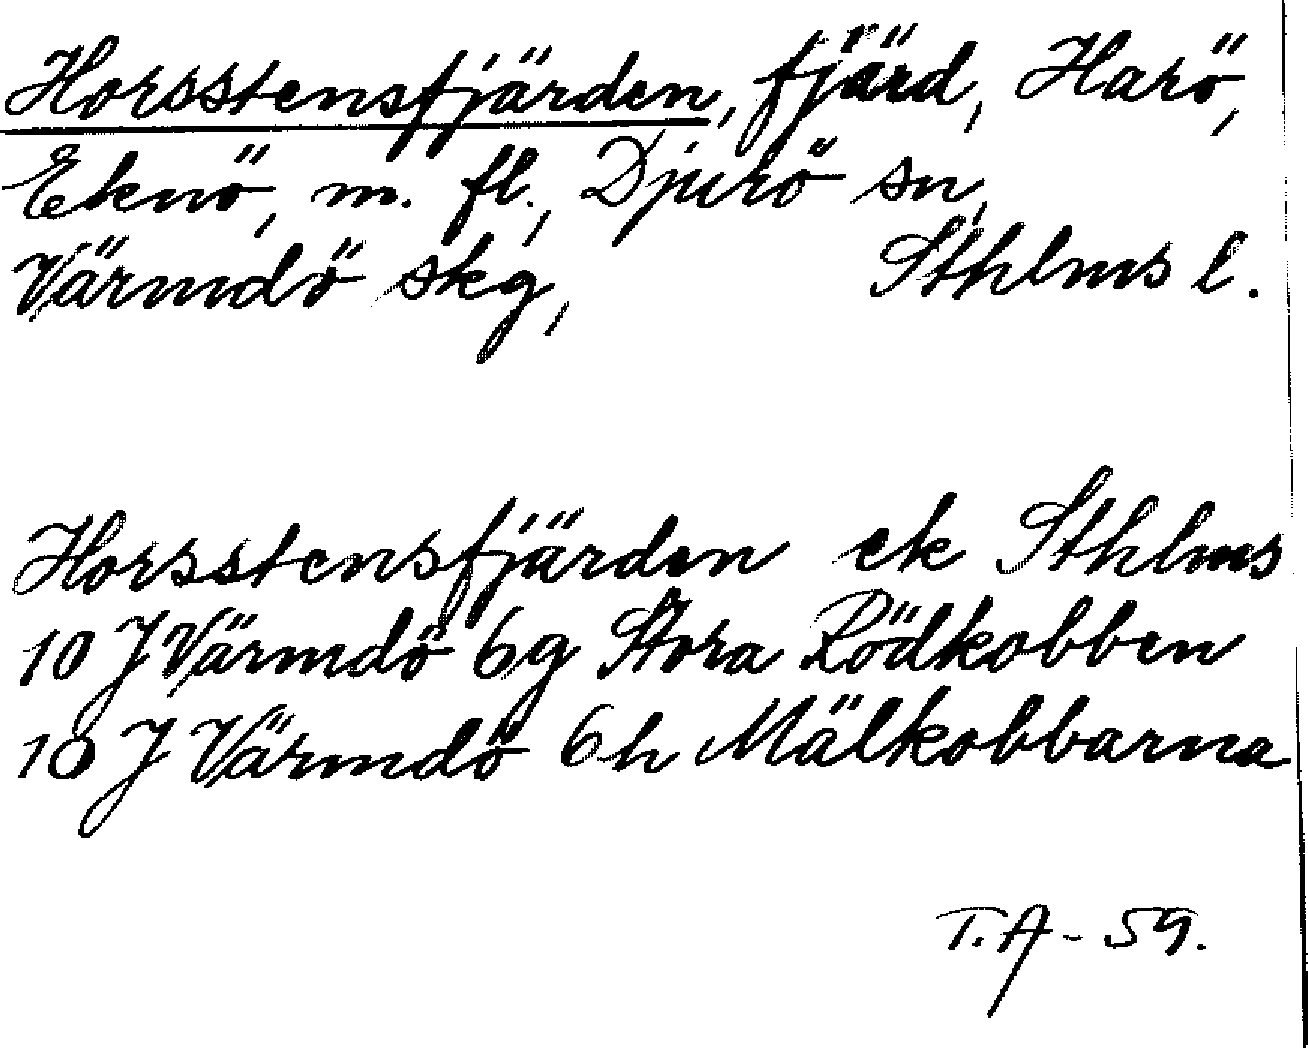 Horsstensfjärden, fjärd, Harö,
Eknö, m. fl., Djurö sn,
Värmdö skg, Sthlms l.
Horsstensfjärden ek Sthlms
10 J Värmdö 6g Stora Rödkobben
10 J Värmdö 6h Mälkobbarna
T.A - 59.